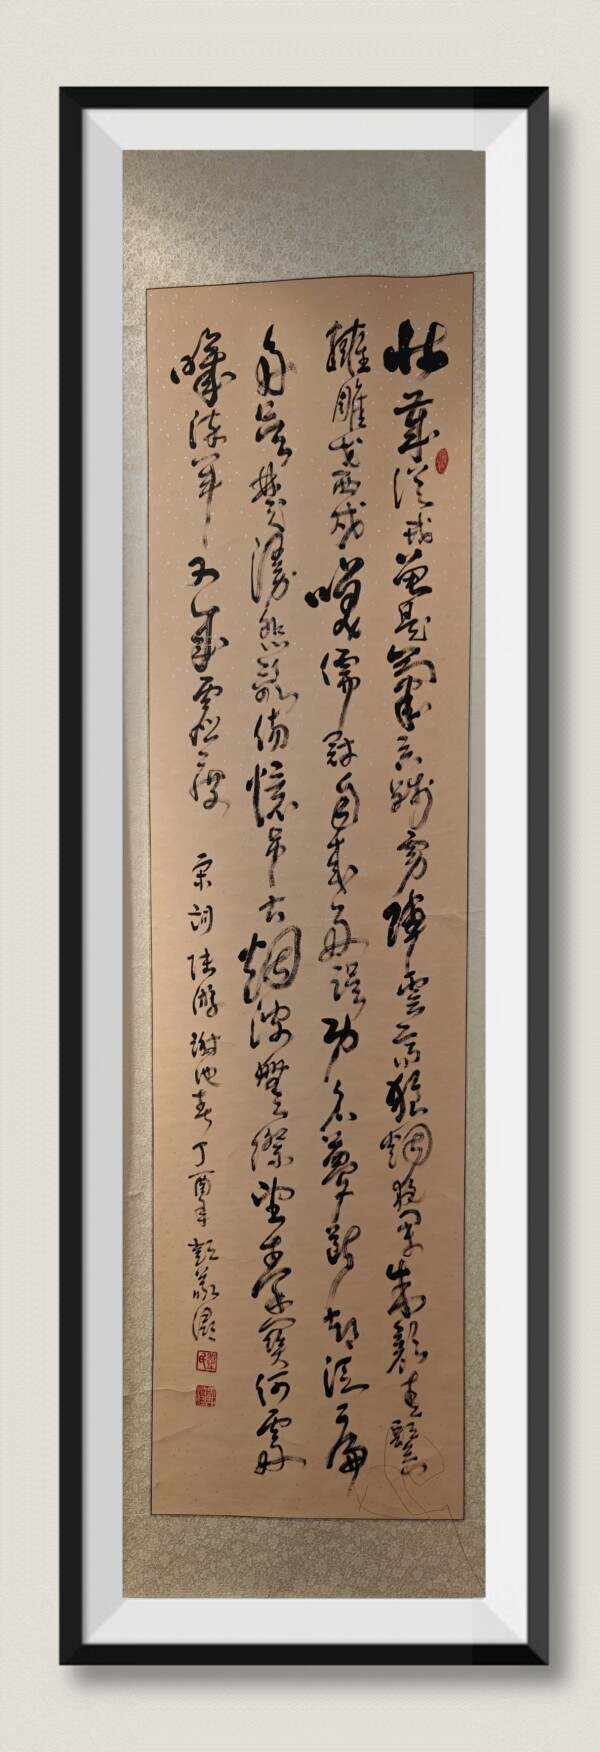 壯歲從戎曾是氣吞殘虜陣雲高狼烟夜舉朱顏青鬢
擁雕戈西戍咲儒冠自來多誤功名夢斷却泛扁
舟吳楚漫悲歌傷懷吊古烟波無際望秦關何處
嘆流年又成虛度 宋詞陸游謝池春丁酉年彭